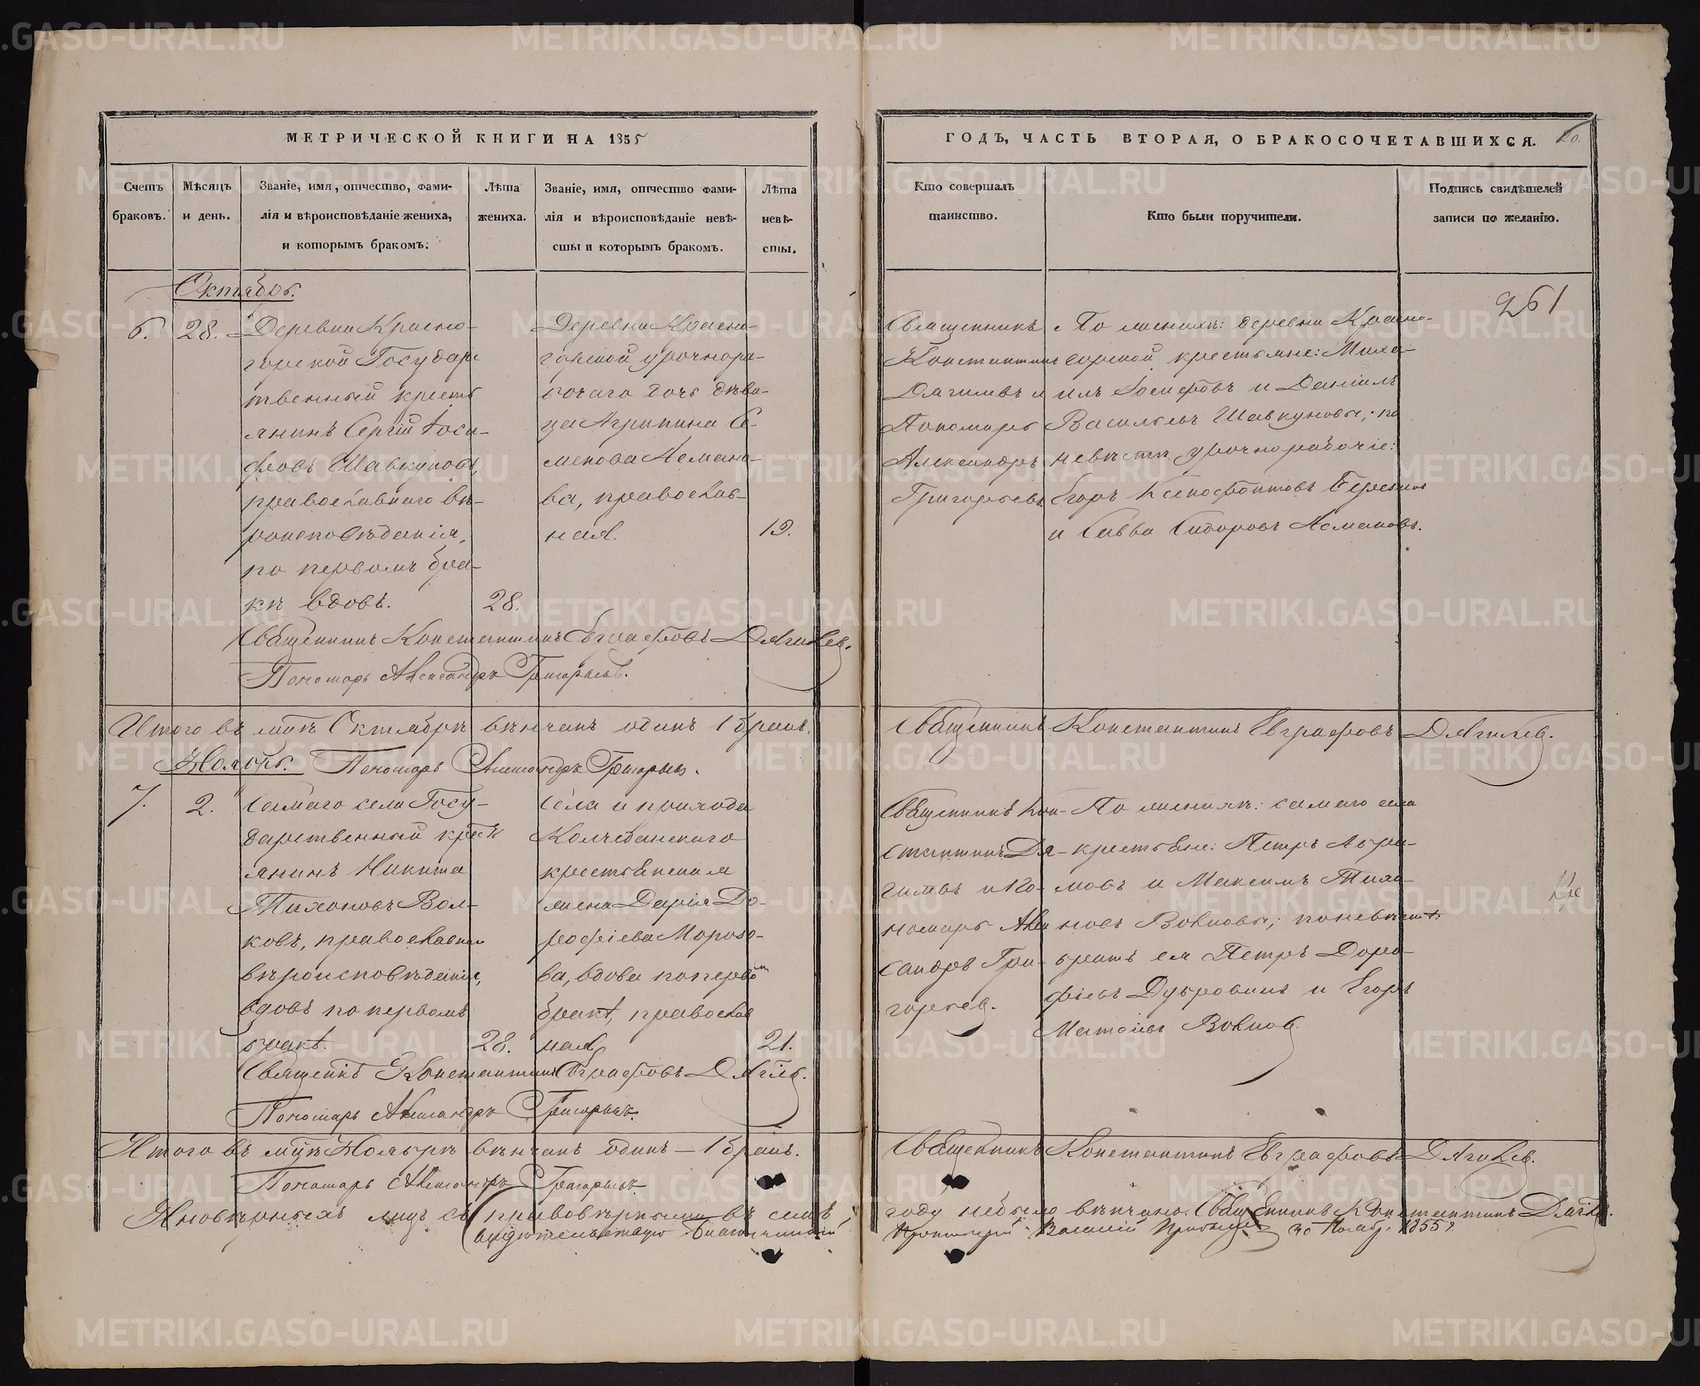 МЕТРИЧЕСКОЙ КНИГИ НА 1855
ГОДЪ, ЧАСТЬ ВТОРАЯ, О БРАКОСОЧЕТАВШИХСЯ.
Счетъ браковъ.
Мѣсяцъ и день.
Званіе, имя, отчество, фами-
лія и вѣроисповѣданіе жениха,
и которымъ бракомъ.
Лѣта
жениха.
Званіе, имя, отчество фами-
лія и вѣроисповѣданіе невѣ-
сты и которымъ бракомъ.
Лѣта
невѣ-
сты.
Кто совершалъ
таинство.
Кто были поручители.
Подпись свидѣтелей
записи по желанію.
261
Октябрь.
6. 28.
Деревни Красно-
горской Государ-
твенный кресть
янинъ Сергій Іоси-
фовъ Шавкуновъ,
православнаго вѣ-
роисповѣданія,
по первомъ бра-
кѣ вдовъ.
28.
Деревни Красно-
горской урочнора-
бочаго дочь дѣви-
ца Агрипина Се-
менова Асмано-
ва, православ-
ная.
19.
Священникъ
Константинъ
Дягилевъ и
Пономарь
Александръ
Григорьевъ
По женихѣ: деревни Красно-
горской крестьяне: Миха-
илъ Іосифовъ и Даніилъ
Васильевъ Шавкуновы; по
невѣстѣ урочнорабочіе:
Егоръ Ксенофонтовъ
и Савва Сидоровъ Асмановъ.
Священникъ Константинъ Евграфовъ Дягилев.
Пономарь Александръ Григорьевъ.
Итого въ мцѣ Октябрѣ вѣнчанъ одинъ 1 бракъ.
Священникъ Константинъ Евграфовъ Дягилев.
Ноябрь. Пономарь Александръ Григорьевъ.
7. 2.
Самаго села Госу-
дарственный крестъ
янинъ Никита
Тихоновъ Вол-
ковъ, православнаго
вѣроисповѣданія,
вдовъ по первомъ
бракѣ.
28.
Села и прихода
Колчеданскаго
крестьянская
жена Дарія До-
рофіева Морозо-
ва, вдова по первом
бракѣ, православ
ная
21.
Священникъ Кон-
стантинъ Дя-
гилевъ и По-
номарь Алек
сандръ Гри-
горьев.
По женихѣ: самаго села
крестьяне: Петръ Абра-
мовъ и Максимъ Тихо-
новъ Волковы; по невѣстѣ:
братъ ея Петръ Доро-
фіевъ Дубровинъ и Егоръ
Матвѣевъ Волков.
Священникъ Константинъ Евграфовъ Дягилев.
Пономарь Александръ Григорьевъ.
Итого въ мцѣ Ноябрѣ вѣнчанъ одинъ — 1 бракъ.
Священникъ Константинъ Евграфовъ Дягилев.
Пономарь Александръ Григорьевъ
Иновѣрныхъ лицъ съ правовѣрными въ семъ
году небыло вѣнчано. Священникъ Константинъ Дягилев.
Протоіерей Василій 30 Ноябр. 1855 г.
METRIKI.GASO-URAL.RU